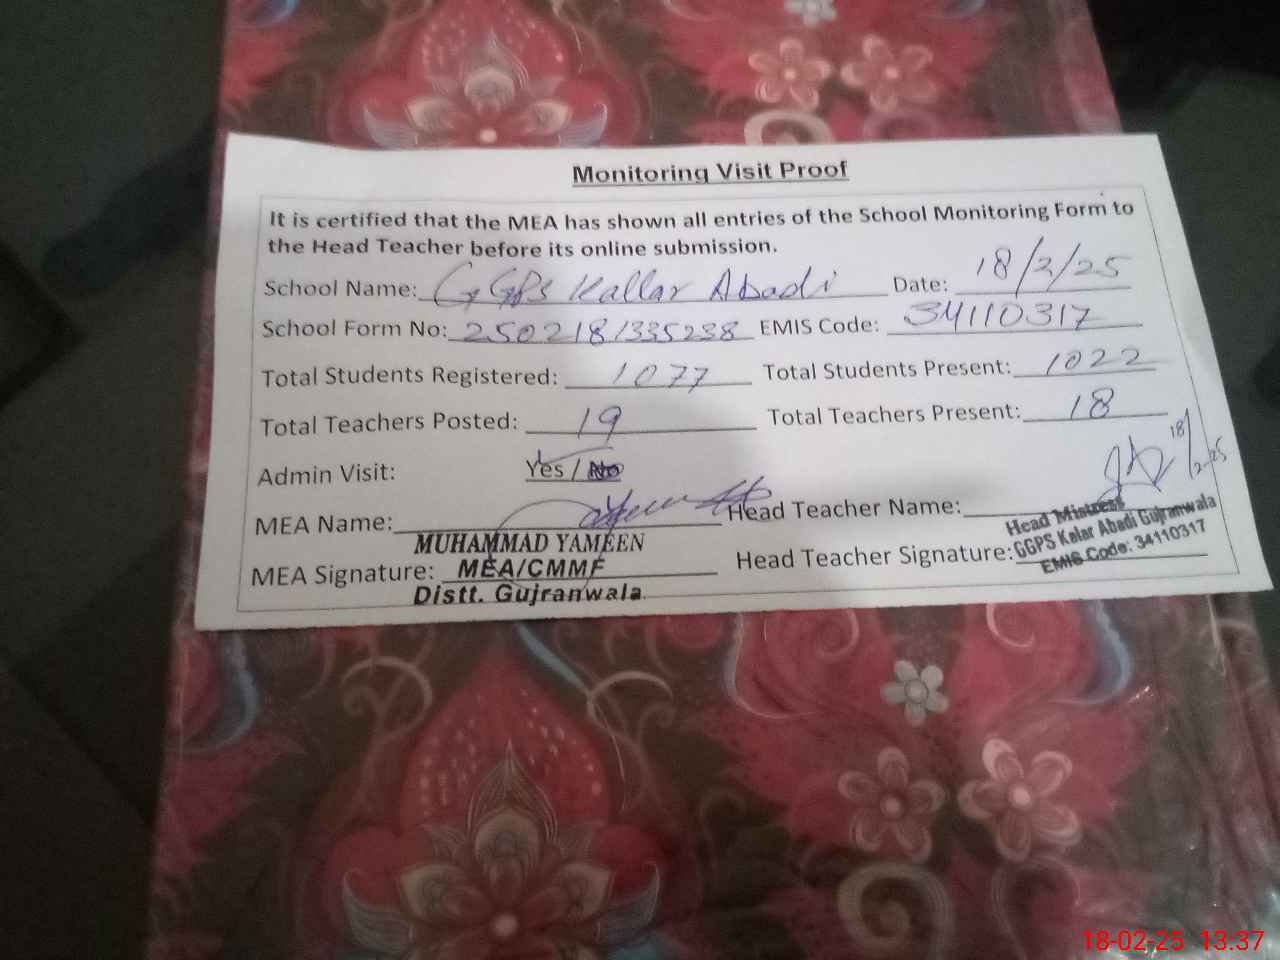 Monitoring Visit Proof
It is certified that the MEA has shown all entries of the School Monitoring Form to
the Head Teacher before its online submission.
School Name: GGPS Kallar Abadi Date: 18/2/25
School Form No: 250218/335238 EMIS Code: 34110317
Total Students Registered: 1077 Total Students Present: 1022
Total Teachers Posted: 19 Total Teachers Present: 18
Admin Visit: Yes / No
18/2-25
MEA Name: Head Teacher Name:
MUHAMMAD YAMEEN Head Mistress
MEA Signature: MEA/CMMF Head Teacher Signature: GGPS Kelar Abadi Gujranwala
Distt. Gujranwala EMIS Code: 34110317
18-02-25 13:37